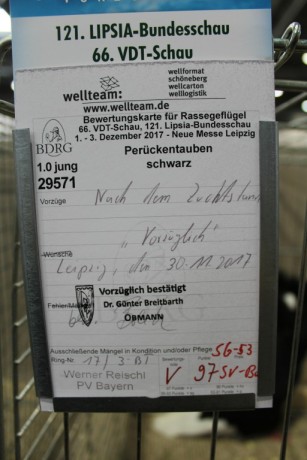 121. LIPSIA-Bundesschau
66. VDT-Schau
wellteam:
wellformat
schöneberg
wellcarton
welllogistik
www.wellteam.de
Bewertungskarte für Rassegeflügel
66. VDT-Schau, 121. Lipsia-Bundesschau
1. - 3. Dezember 2017 - Neue Messe Leipzig
BDRG
Perückentauben
schwarz
1.0 jung
29571
Vorzüge
Nach dem
"Vorzüglich"
Wünsche
Leipzig, den 30.11.2017
Vorzüglich bestätigt
Dr. Günter Breitbarth
Fehler/Mängel
OBMANN
Ausschließende Mängel in Kondition und/oder Pflege
56-53
Ring-Nr.
V
97 SV-
Werner Reischl
PV Bayern